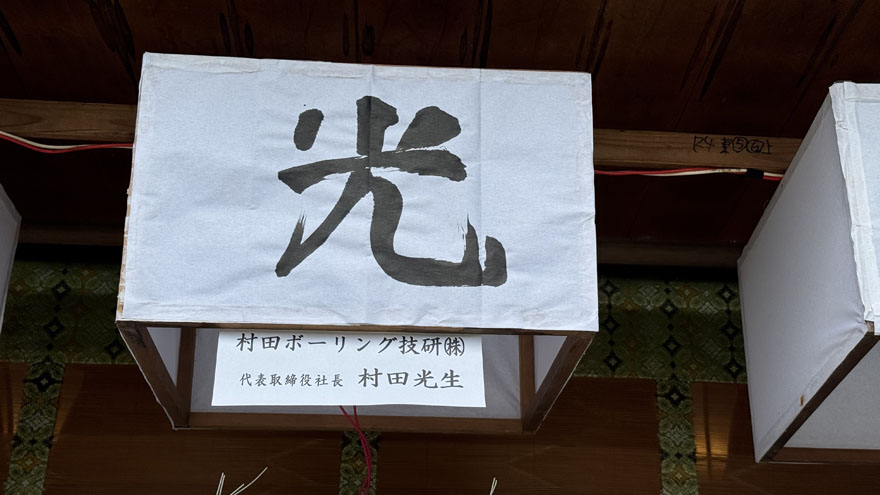 光
村田ボーリング技研㈱
代表取締役社長 村田光生